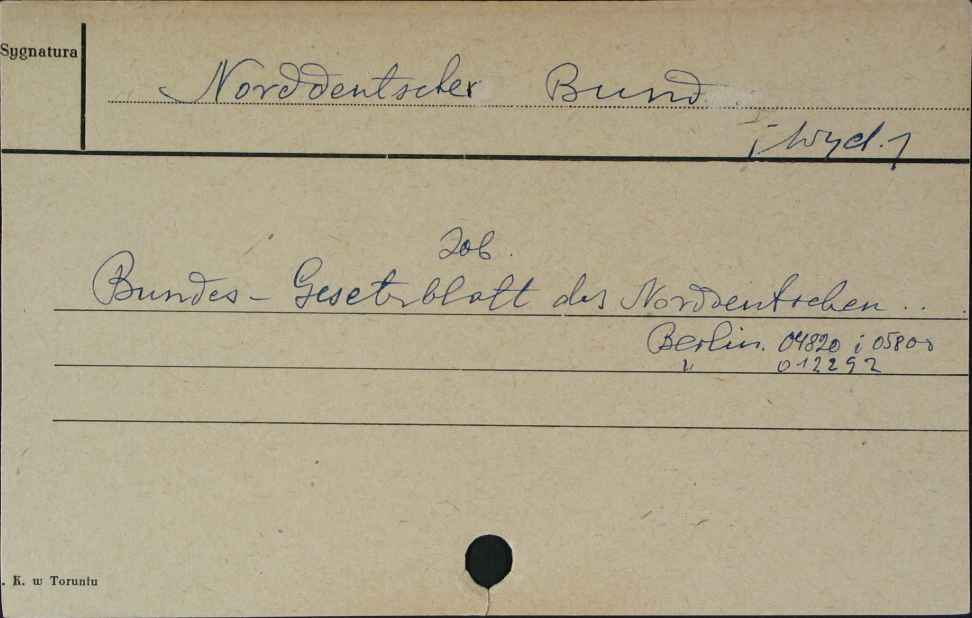 Sygnatura
Norddeutscher Bund
[Wyd.]
Zob.
Bundes-Gesetzblatt des Norddeutschen . . .
Berlin. 04820 i 05800
" 012292
. K. w Toruniu